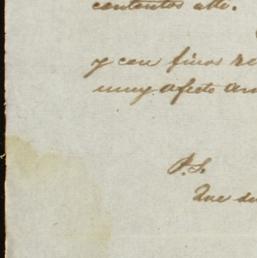 contentos alli.
y con finos re
muy afecto am
P. S.
Que de